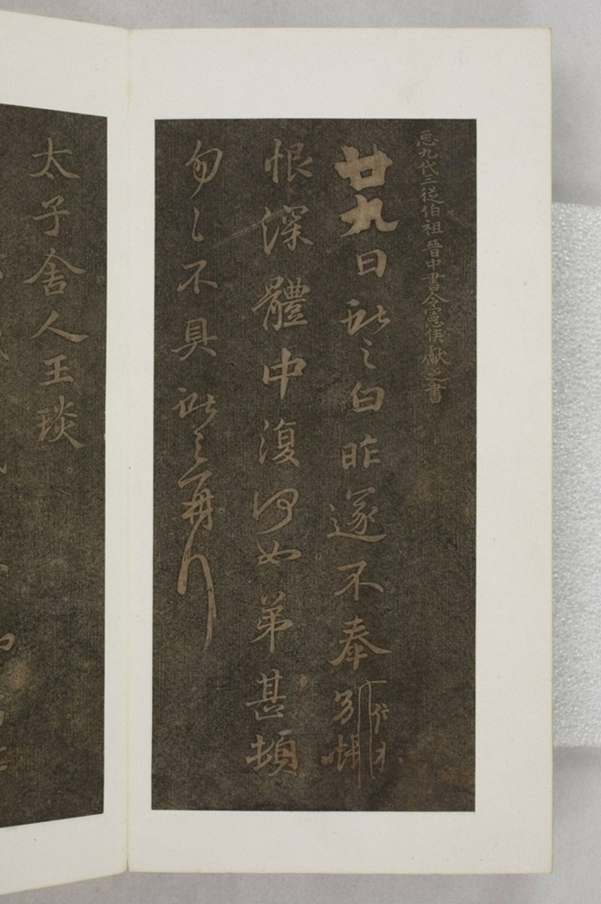 𢘑九代三從伯祖晉中書令憲侯獻之書
廿九日獻之白昨遂不奉別悵
恨深體中復何如弟甚頓
匆〻不具獻之再拜
太子舍人王琰